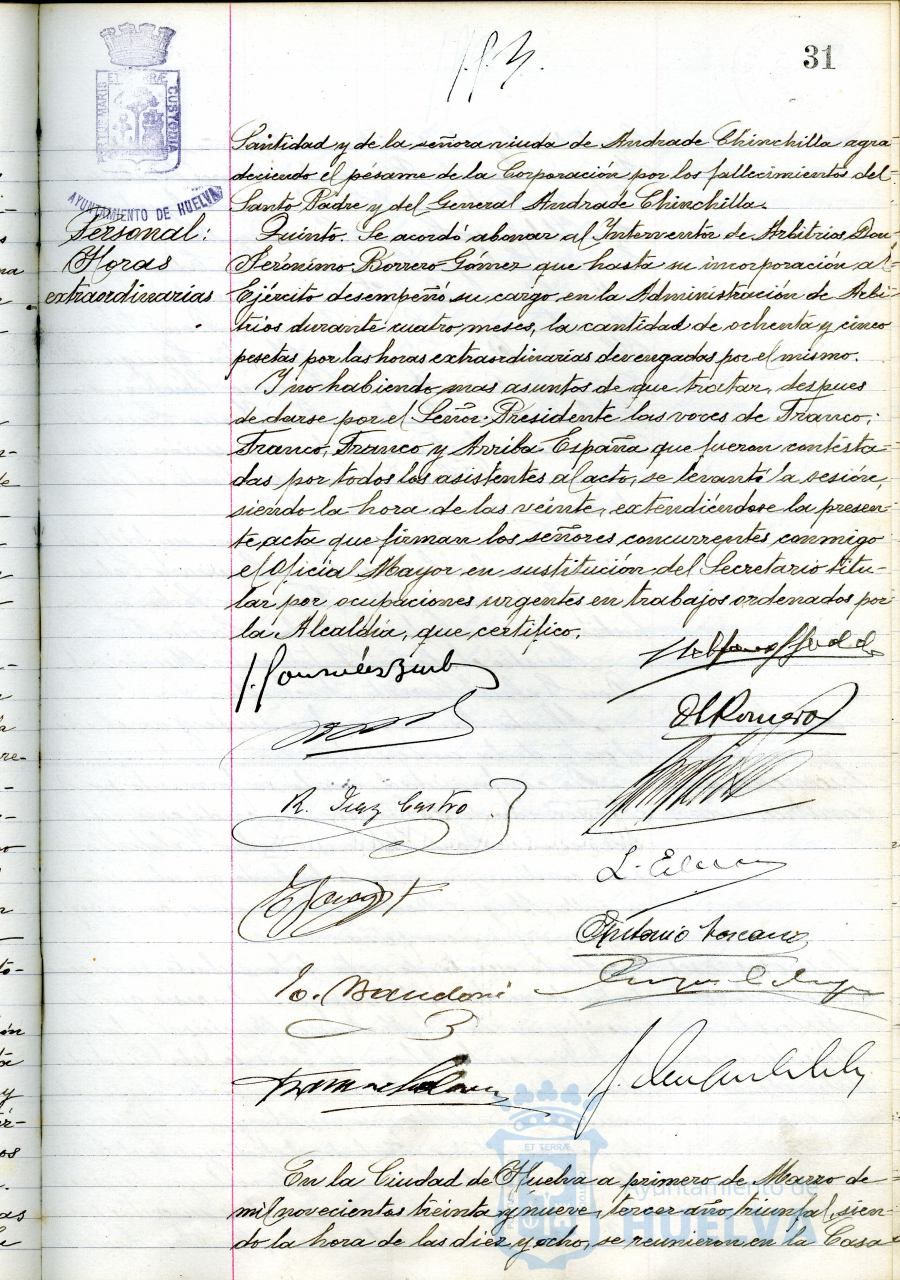 31
PORTUS MARIS ET TERRÆ CUSTODIA
AYUNTAMIENTO DE HUELVA
Santidad y de la señora viuda de Andrade Chinchilla agra-
deciendo el pésame de la Corporación por los fallecimientos del
Santo Padre y del General Andrade Chinchilla.
Personal:
Horas
extraordinarias
Quinto. Se acordó abonar al Interventor de Arbitrios Don
Jerónimo Borrero Gómez que hasta su incorporación al
Ejército desempeñó su cargo, en la Administración de Arbi-
trios durante cuatro meses, la cantidad de ochenta y cinco
pesetas por las horas extraordinarias devengadas por el mismo.
Y no habiendo mas asuntos de que tratar, despues
de darse por el Señor Presidente las voces de Franco,
Franco, Franco y Arriba España que fueron contesta-
das por todos los asistentes al acto, se levantó la sesión,
siendo la hora de las veinte, extendiéndose la presen-
te acta que firman los señores concurrentes conmigo
el Oficial Mayor en sustitución del Secretario titu-
lar por ocupaciones urgentes en trabajos ordenados por
la Alcaldía, que certifico.
R. Diaz Castro
Antonio Toscano
En la Ciudad de Huelva a primero de Marzo de
mil novecientos treinta y nueve, tercer año triunfal, sien-
do la hora de las diez y ocho, se reunieron en la Casa
ET TERRÆ
Ayuntamiento de
HUELVA